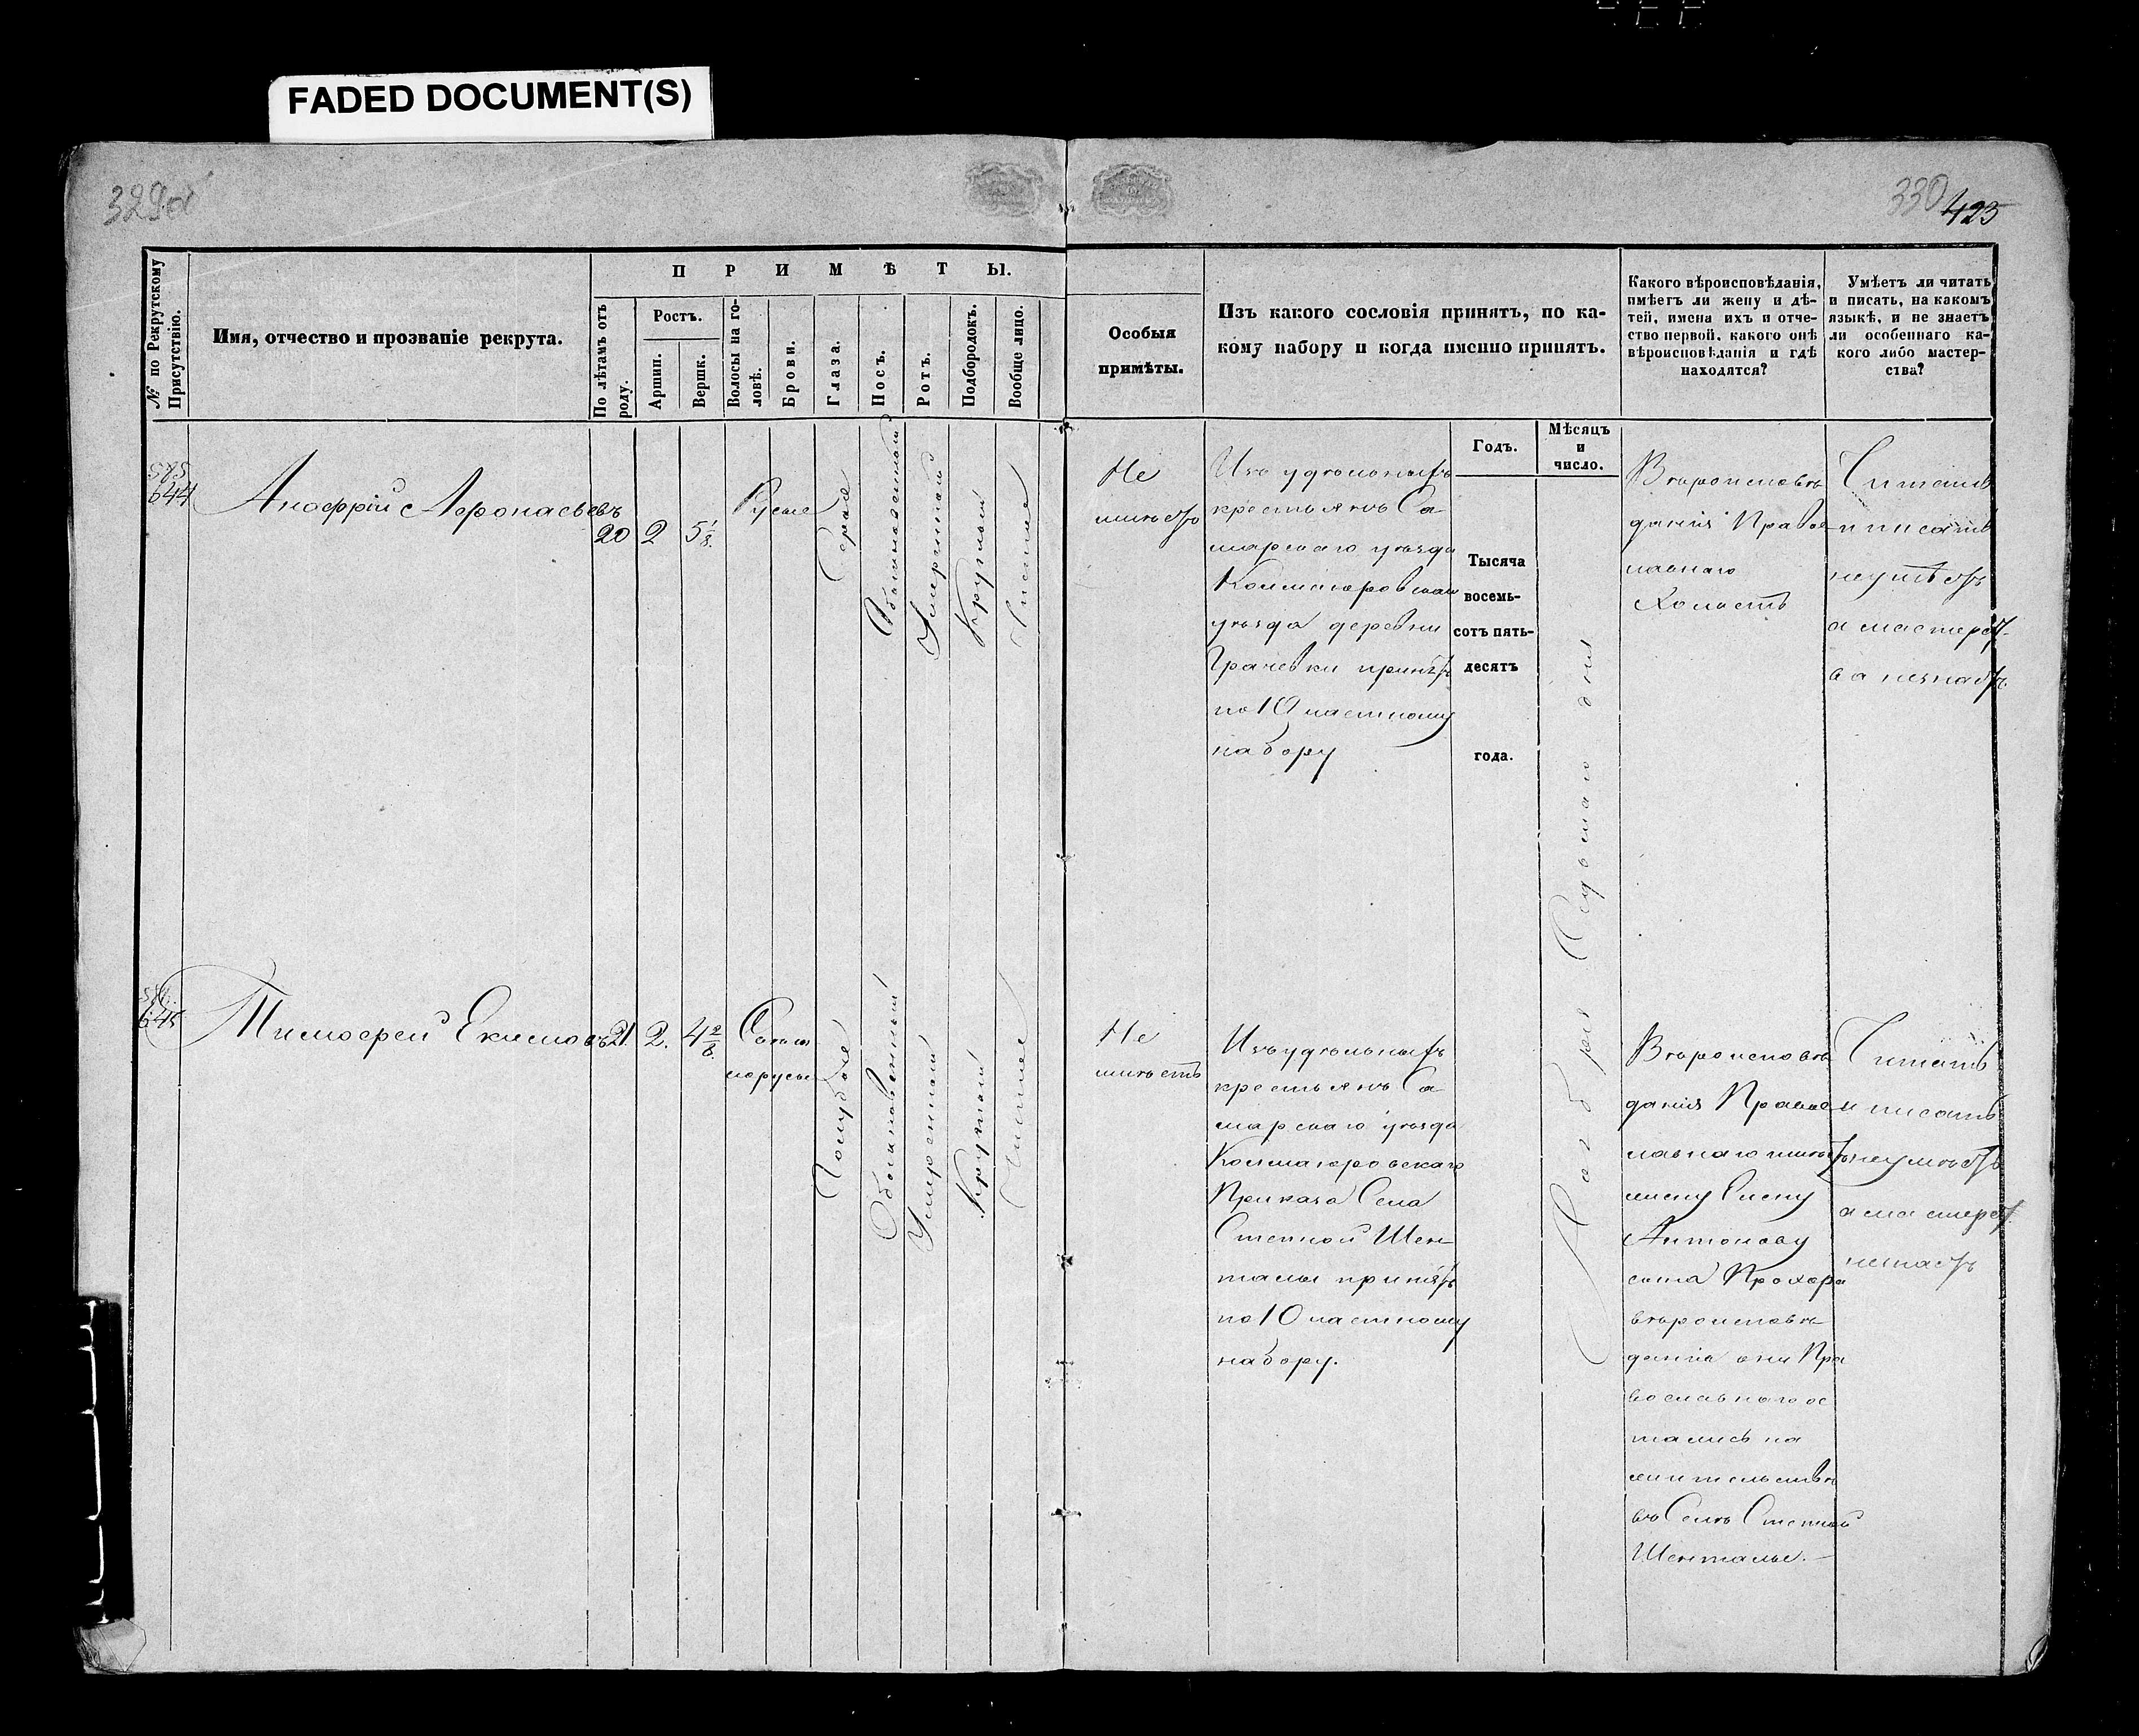 FADED DOCUMENT(S)
329об
330
423
№ по Рекрутскому Присутствію.
Имя, отчество и прозваніе рекрута.
ПРИМѢТЫ.
По лѣтамъ отъ роду.
Ростъ.
Аршин.
Вершк.
Волосы на головѣ.
Брови.
Глаза.
Носъ.
Ротъ.
Подбородокъ.
Вообще лицо.
Особыя
примѣты.
Изъ какого сословія принятъ, по ка-
кому набору и когда именно принятъ.
Какого вѣроисповѣданія,
имѣетъ ли жену и дѣ-
тей, имена ихъ и отче-
ство первой, какого онѣ
вѣроисповѣданія и гдѣ
находятся?
Умѣетъ ли читать
и писать, на какомъ
языкѣ, и не знаетъ
ли особеннаго ка-
кого либо мастер-
ства?
Годъ.
Мѣсяцъ
и
число.
575
644
Анофрій Афонасьевъ
20
2
5 1/8.
Русые
Серые
Обыкновенный
Умеренный
Круглый
Чистое
Не
имѣетъ
Изъ удѣльныхъ
крестьянъ Са-
марскаго уѣзда
уѣзда деревни
Грачевки принятъ
по 10 частному
набору
Тысяча
восемь-
сотъ пять-
десятъ
года.
Ноября Седьмаго дня
Вѣроисповѣ
данія Правос
лавнаго
Холостъ
Читать
и писать
неумѣетъ
а мастерст-
ва незнаетъ
645
Тимофей Екимовъ
21.
2.
4 2/8.
Светлорусые
Голубые
Обыкновенный
Умеренный
Круглый
Чистое
Не
имѣетъ
Изъ удѣльныхъ
крестьянъ Са-
марскаго уѣзда
Приказа Села
Степной Шен-
талы принятъ
по 10 частному
набору.
Вѣроисповѣ
данія Правос
лавнаго имѣетъ
жену Елену
Антонову
сына Прохора
вѣроисповѣ-
данія они Пра
вославнаго ос
тались на
жительствѣ
въ Селѣ Степной
Шенталы.
Читать
и писать
неумѣетъ
а мастерст
незнаетъ